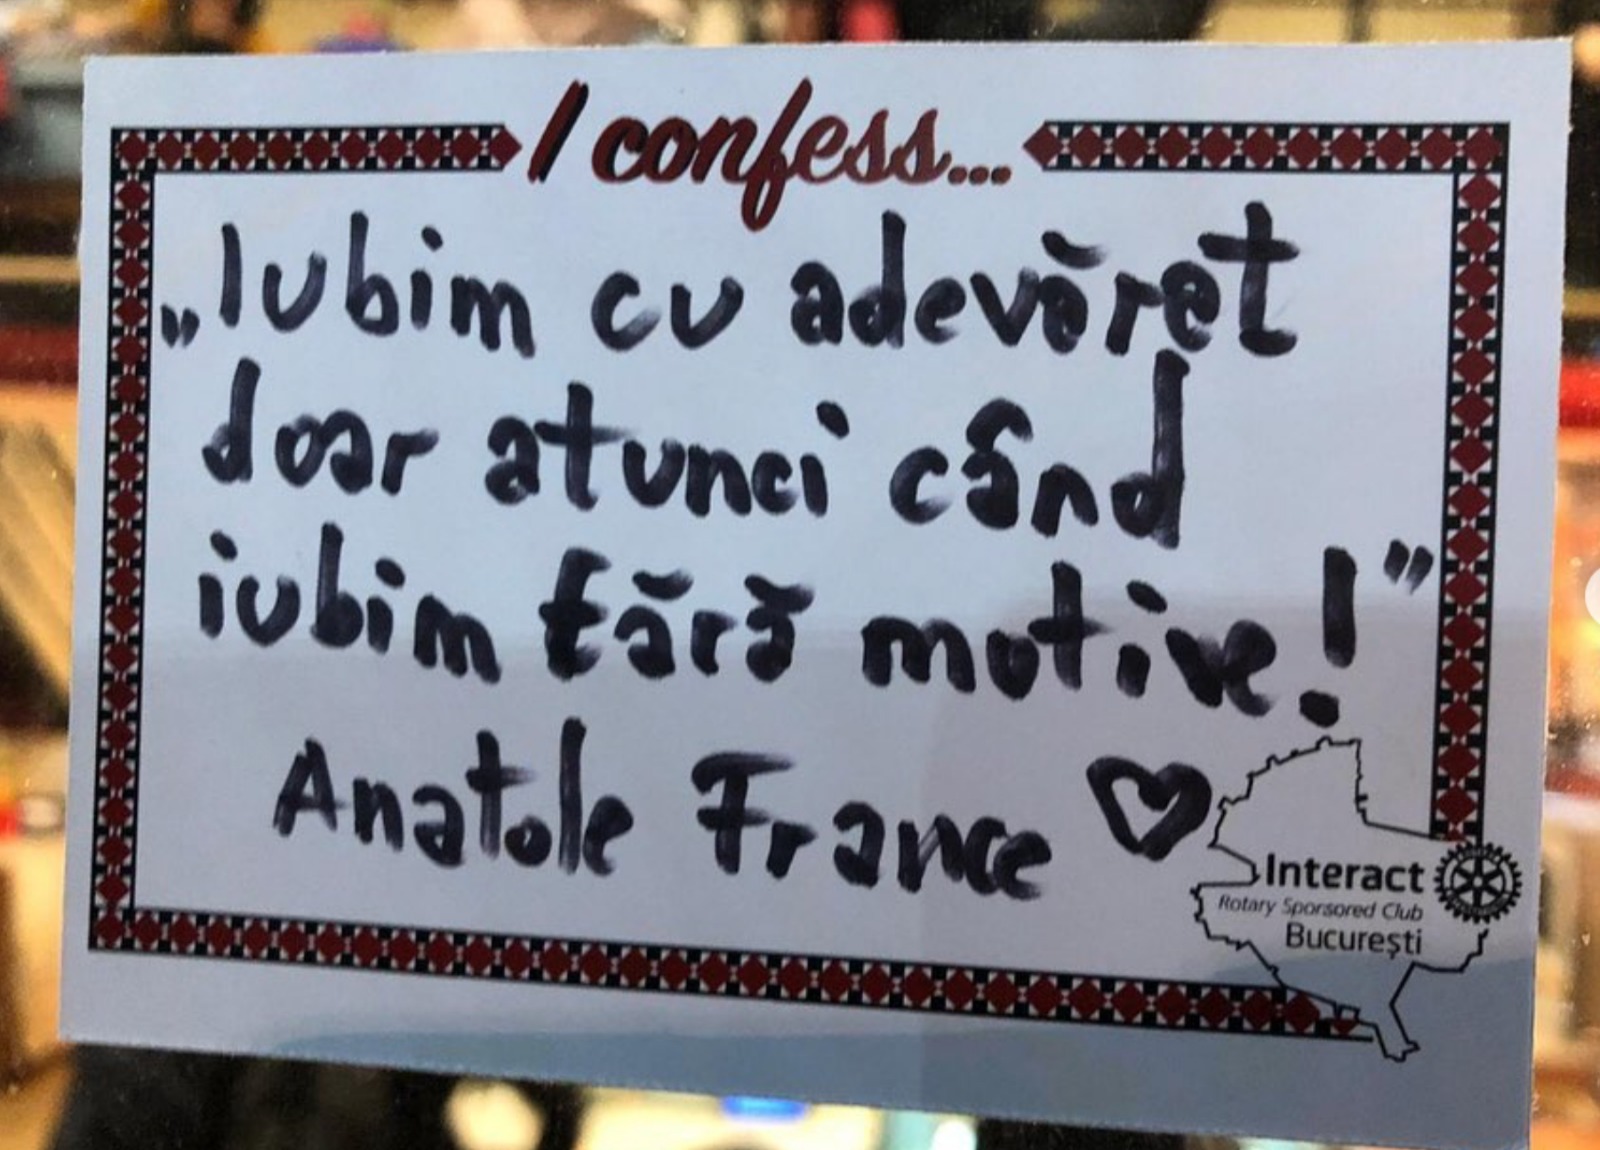 I confess...
„Iubim cu adevărat
doar atunci când
iubim fără motive!”
Anatole France
Interact
Rotary Sponsored Club
Bucureşti